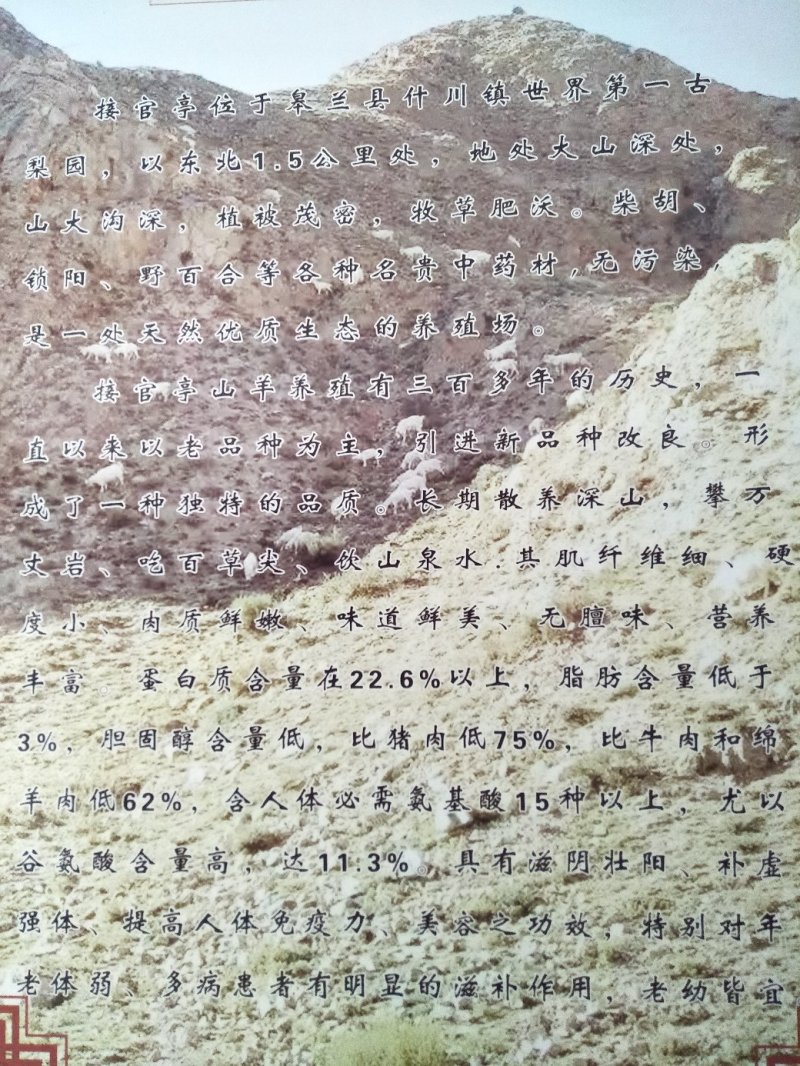 接官亭位于皋兰县什川镇世界第一古
梨园，以东北1.5公里处，地处大山深处，
山大沟深，植被茂密，牧草肥沃。柴胡、
锁阳、野百合等各种名贵中药材,无污染，
是一处天然优质生态的养殖场。
接官亭山羊养殖有三百多年的历史，一
直以来以老品种为主，引进新品种改良。形
成了一种独特的品质。长期散养深山，攀万
丈岩、吃百草尖、饮山泉水.其肌纤维细、硬
度小、肉质鲜嫩、味道鲜美、无膻味、营养
丰富。蛋白质含量在22.6%以上，脂肪含量低于
3%，胆固醇含量低，比猪肉低75%，比牛肉和绵
羊肉低62%，含人体必需氨基酸15种以上，尤以
谷氨酸含量高，达11.3%。具有滋阴壮阳、补虚
强体、提高人体免疫力、美容之功效，特别对年
老体弱、多病患者有明显的滋补作用，老幼皆宜